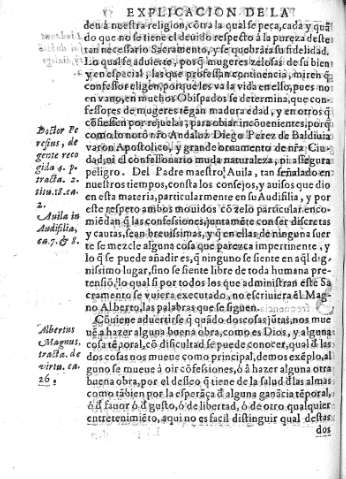 EXPLICACION DE LA
den á nuestra religion, cõtra la qual se peca, cada y quã
do que no se tiene el deuido respecto à la pureza deste
tan necessario Sacramento, y se quebrãta su fidelidad.
Lo qual se aduierte, porq̃ mugeres zelosas de su bien
y en especial, las que professan continencia, miren q̃
confessor eligen, porque les va la vida en ello, pues no
en vano, en muchos Obispados se determina, que con-
fessores de mugeres tẽgan madura edad, y en otros q̃
cõfiessen por rejuelas, para obiar incõuenientes, porq̃
como lo notò nr̃o Andaluz Diego Perez de Baldiuia
varon Apostolico, y grande ornamento de nr̃a Ciu-
dad, ni el confessonario muda naturaleza, ni assegura
peligro. Del Padre maestro Auila, tan señalado en
nuestros tiempos, consta los consejos, y auisos que dio
en esta materia, particularmente en su Audifilia, y por
este respeto ambos mouidos cõ zelo particular, enco-
miẽdan q̃ las confessiones, juntamẽte con ser discretas
y cautas, sean breuissimas, y q̃ en ellas de ninguna suer
te se mezcle alguna cosa que parezca impertinente, y
lo q̃ se puede añadir es, q̃ ninguno se siente en aq̃l dig-
nissimo lugar, sino se siente libre de toda humana pre-
tensiõ, lo qual si por todos los que administran este Sa
cramento se vuiera executado, no escriuiera el Mag-
no Alberto, las palabras que se siguen.
Cõuiene aduertirse q̃ quãdo dos cosas jũtas, nos mue
uẽ a hazer alguna buena obra, como es Dios, y alguna
cosa tẽporal, cõ dificultad se puede conocer, qual d̃ las
dos cosas nos mueue como principal, demos exẽplo, al
guno se mueue à oir cõfessiones, ò à hazer alguna otra
buena obra, por el desseo q̃ tiene de la salud d̃ las almas
como tãbien por la esperãça d̃ alguna ganãcia tẽporal,
ò d̃ fauor ò d̃ gusto, ò de libertad, ò de otro qualquier
entretenimiẽto, aqui no es facil distinguir qual destas
dos
Doctor Pe
resius, de
gente reco
gida 4. p.
tracta. 2.
titu. 18. ca.
2.
Auila in
Audifilia,
ca. 7. & 8.
Albertus
Magnus,
tracta. de
virtu. ca.
26.